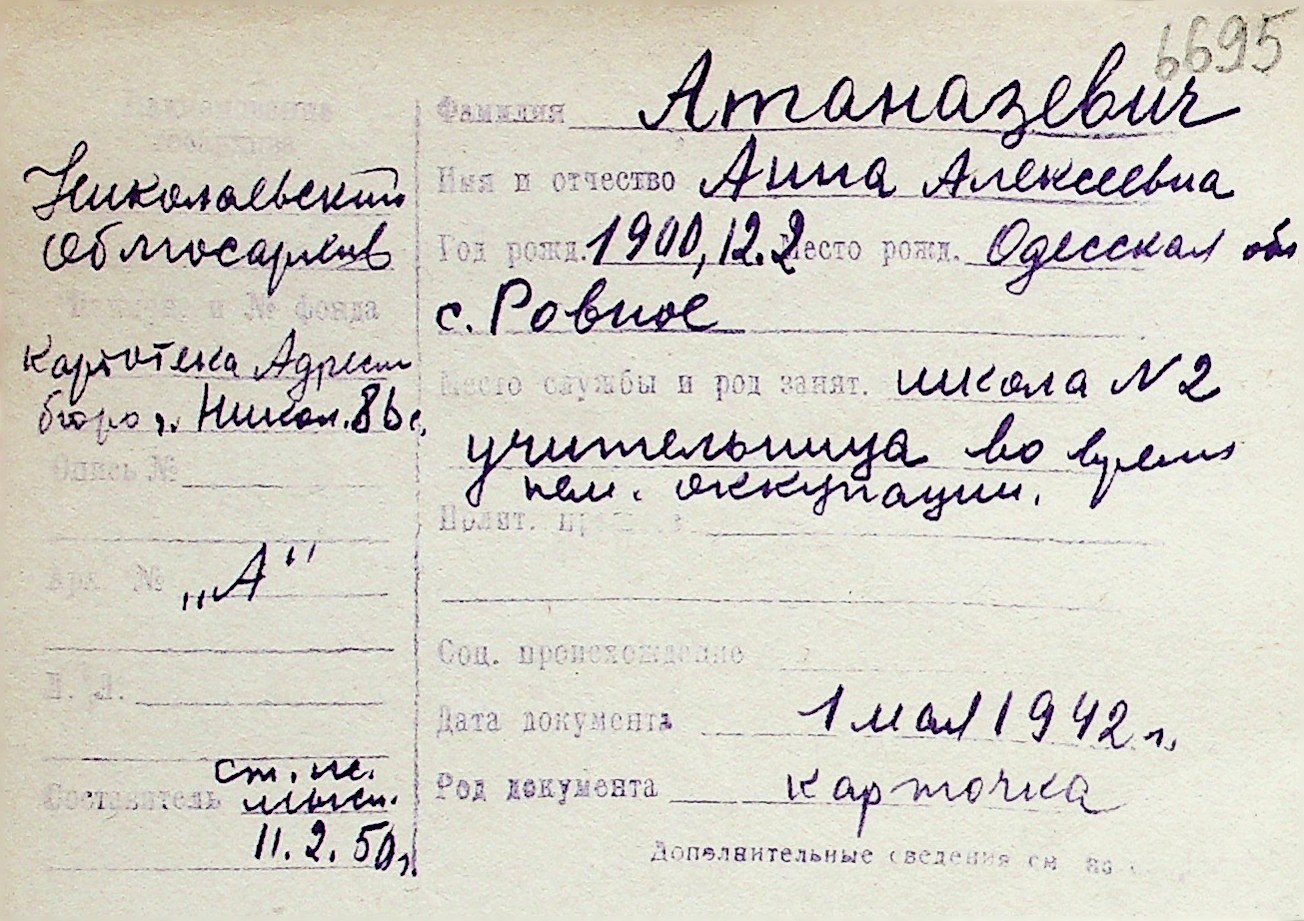 6695
Наименование
госархива
Николаевский
облгосархив
№ фонда
картотека Адресн
бюро г. Никол. 86 с.
Опись №
Арх. №
„А"
Л. Л.
Составитель ст. н.
11.2.50 г.
Фамилия Атаназевич
Имя и отчество Анна Алексеевна
Год рожд. 1900, 12.2 Место рожд. Одесская обл
с. Ровное
Место службы и род занят. школа N 2
учительница во время
нем. оккупации.
Полит.
Соц. происхождение
Дата документа 1 мая 1942 г.
Род документа карточка
Дополнительные сведения см на